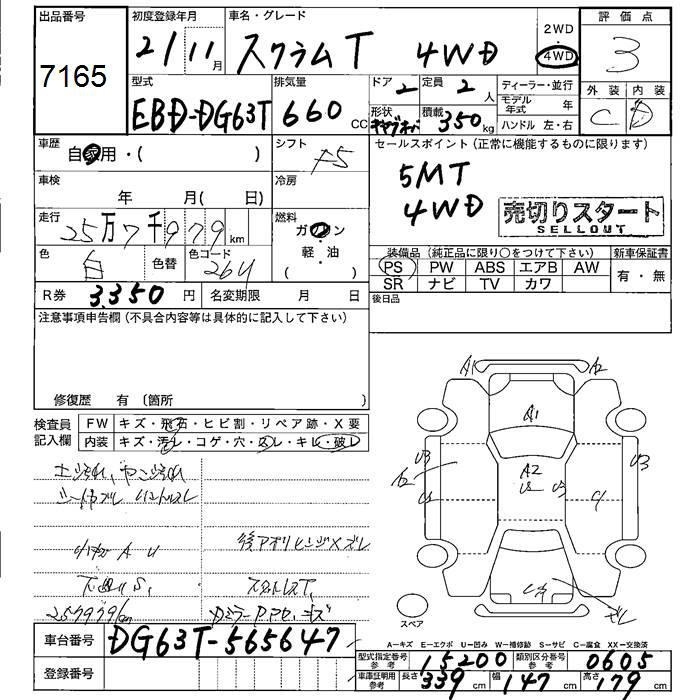 出品番号 初度登録年月 車名・グレード 2WD 評価点
7165 21/11月 スクラムT 4WD ・ 4WD 3
型式 排気量 ドア 定員 ディーラー・並行 外装 内装
EBD-DG63T 660CC 2 2人 モデル年式 年 C D
形状 積載 350kg ハンドル 左・右
車歴 自家用・( ) シフト F5 セールスポイント(正常に機能するものに限ります)
車検 年 月( 日) 冷房 5MT
4WD 売切りスタート
SELLOUT
走行 25万7千979km 燃料 ガソリン
軽・油
( )
色 白 色替 色コード 26U
装備品(純正品に限り○をつけて下さい) 新車保証書
PS PW ABS エアB AW 有・無
SR ナビ TV カワ
R券 3,350円 名変期限 月 日 後日品
注意事項申告欄(不具合内容等は具体的に記入して下さい)
修復歴 有(箇所 )
検査員記入欄 FW キズ・飛石・ヒビ割・リペア跡・X要
内装 キズ・汚レ・コゲ・穴・スレ・キレ・破レ
A1 A2
A1
U3 A2 U3
A2 U2 U3
下廻りS,
257979km
ズレ
スペア
A－キズ E－エクボ U－凹み W－補修跡 S－サビ C－腐食 XX－交換済
車台番号 DG63T-565647
登録番号
型式指定番号参考 15200 類別区分番号参考 0605
車庫証明用参考 長さ 339cm 幅 147cm 高さ 179cm